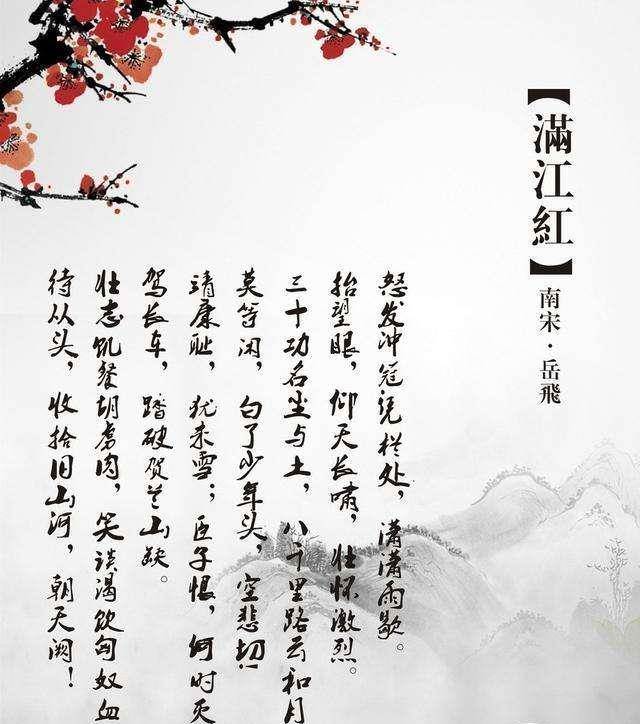 【滿江紅】
南宋·岳飛
怒发冲冠凭栏处，潇潇雨歇。
抬望眼，仰天长啸，壮怀激烈。
三十功名尘与土，八千里路云和月
莫等闲，白了少年头，空悲切！
靖康耻，犹未雪；臣子恨，何时灭
驾长车，踏破贺兰山缺。
壮志饥餐胡虏肉，笑谈渴饮匈奴血
待从头，收拾旧山河，朝天阙！